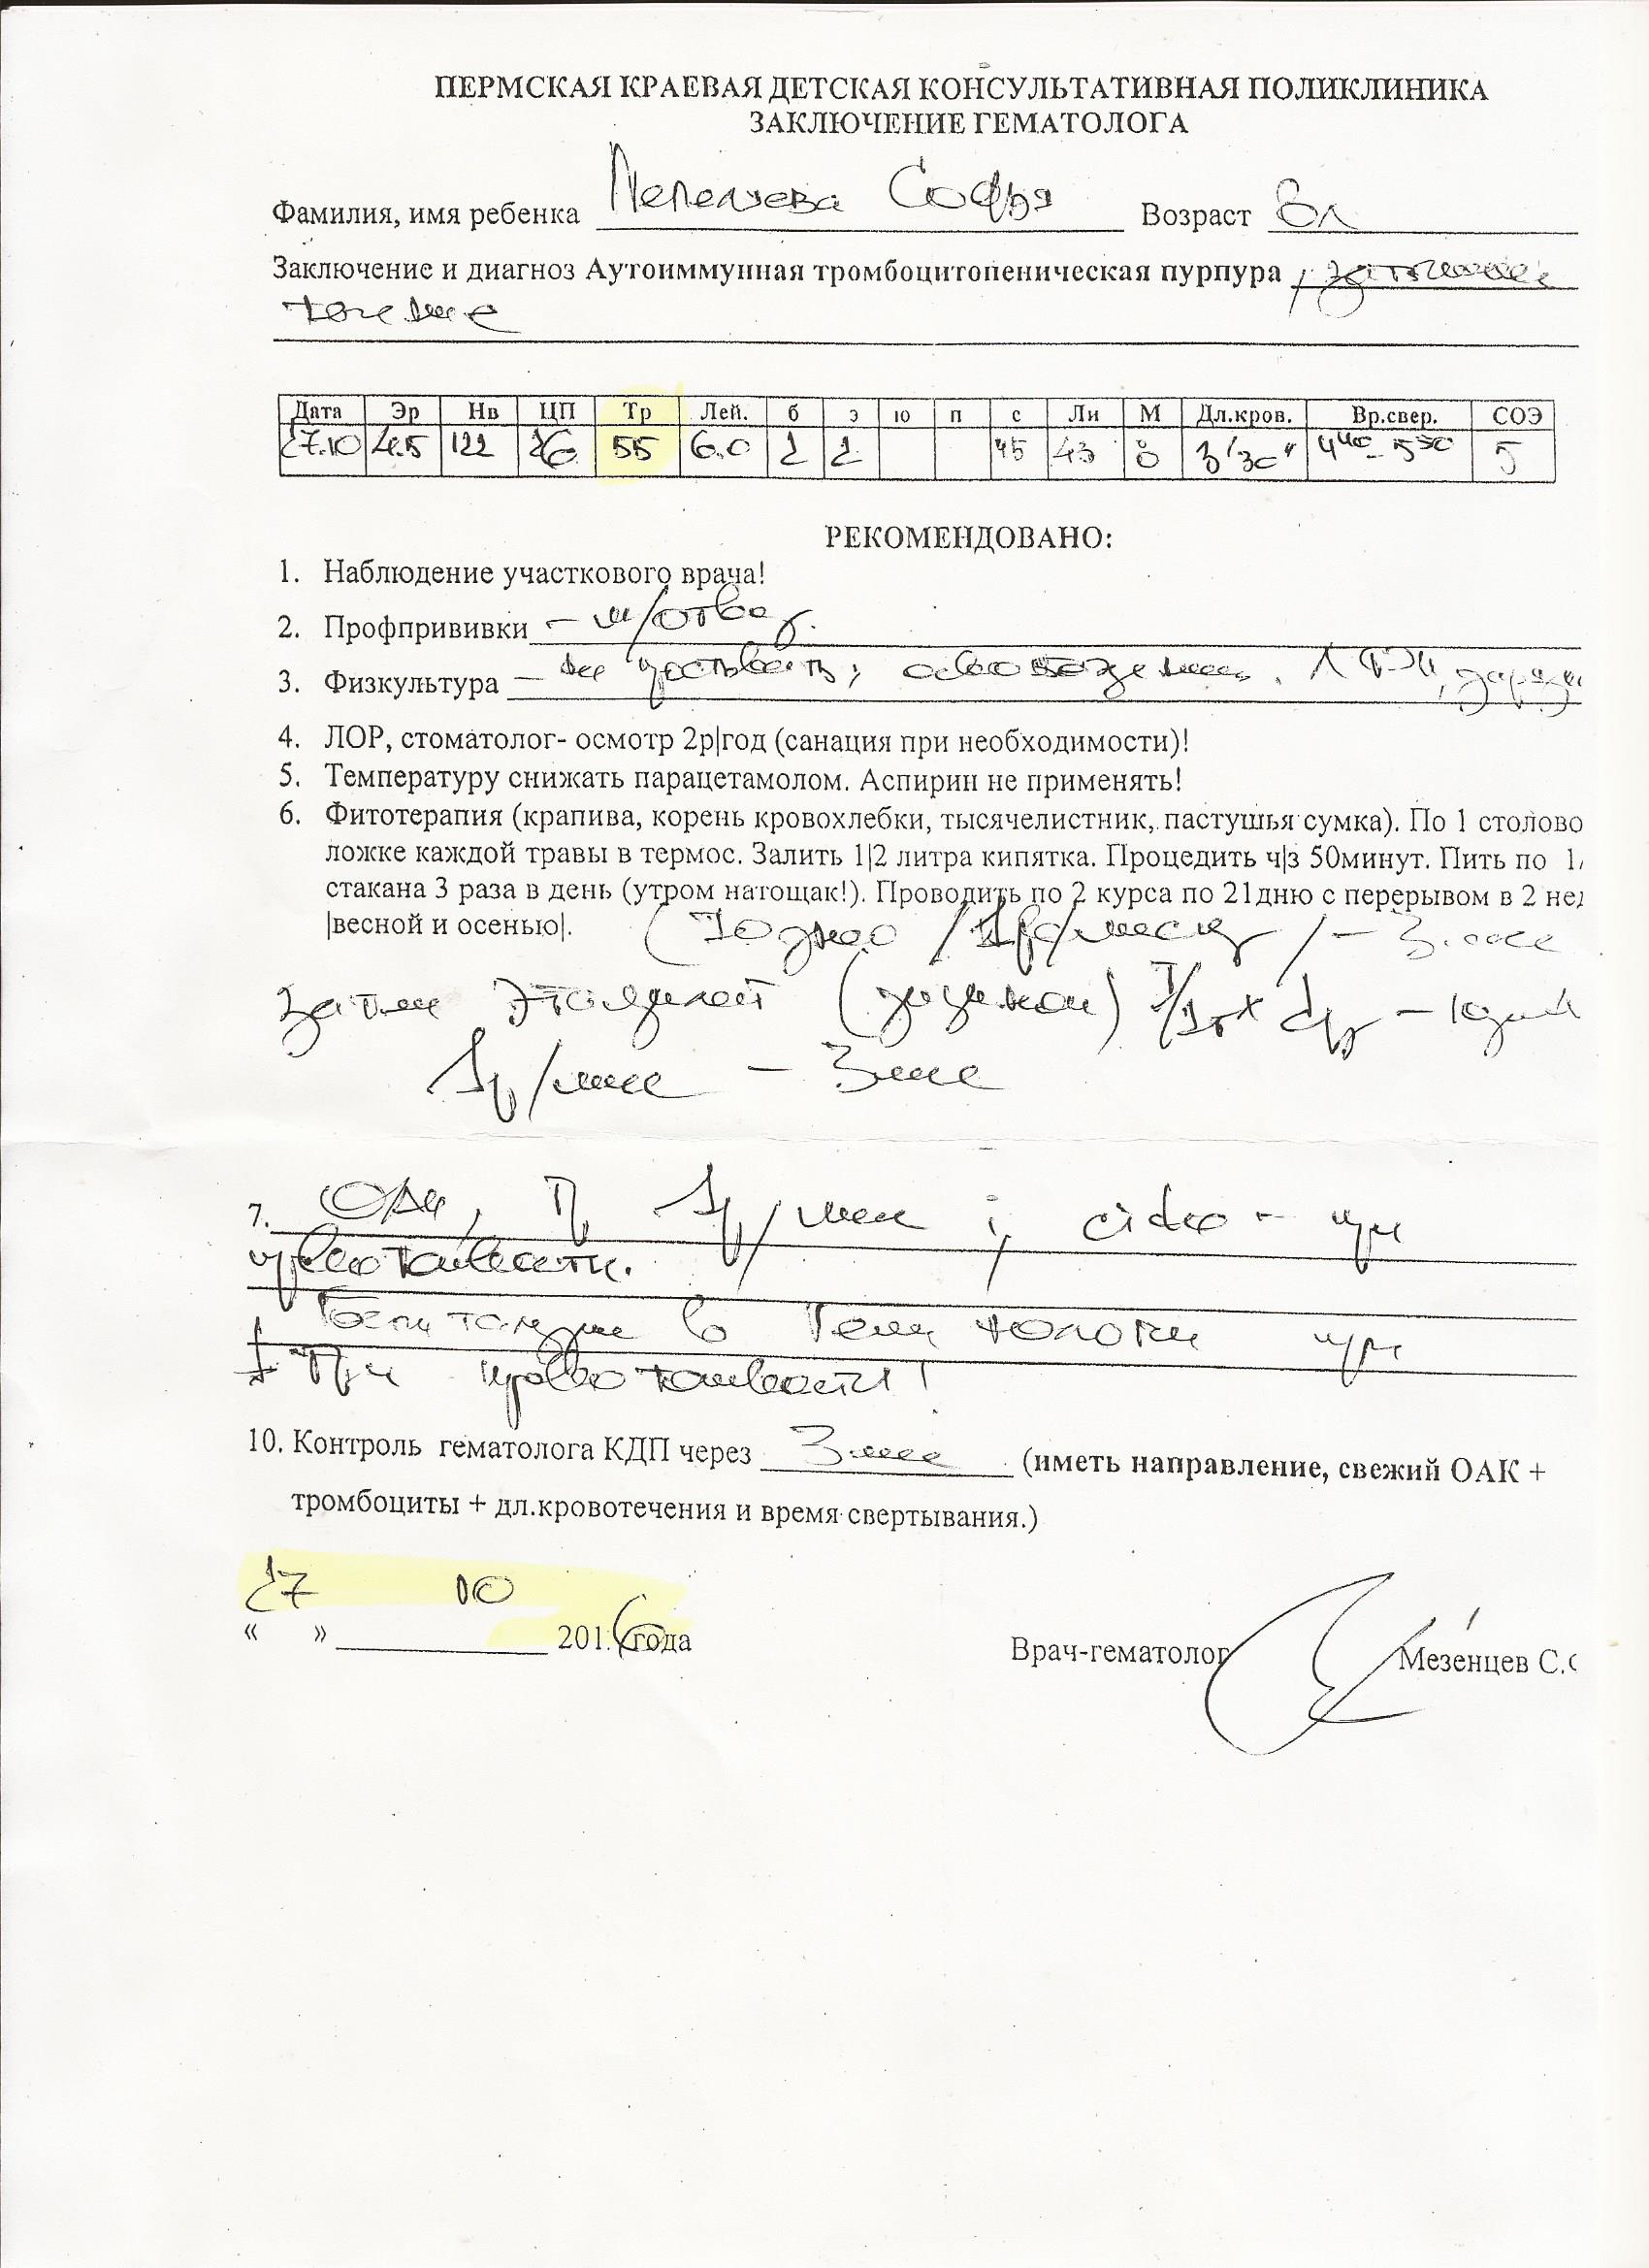 ПЕРМСКАЯ КРАЕВАЯ ДЕТСКАЯ КОНСУЛЬТАТИВНАЯ ПОЛИКЛИНИКА
ЗАКЛЮЧЕНИЕ ГЕМАТОЛОГА
Фамилия, имя ребенка Пепеляева Софья Возраст 8л
Заключение и диагноз Аутоиммунная тромбоцитопеническая пурпура,
течение
Дата Эр Нв ЦП Тр Лей. б э ю п с Ли М Дл.кров. Вр.свер. СОЭ
27.10 4.5 122 26 55 6.0 2 2 45 43 8 3'30" 4⁴⁰-5³⁰ 5
РЕКОМЕНДОВАНО:
1. Наблюдение участкового врача!
2. Профпрививки - м/отвод.
3. Физкультура - ЛФК,
4. ЛОР, стоматолог- осмотр 2р|год (санация при необходимости)!
5. Температуру снижать парацетамолом. Аспирин не применять!
6. Фитотерапия (крапива, корень кровохлебки, тысячелистник, пастушья сумка). По 1 столово
ложке каждой травы в термос. Залить 1|2 литра кипятка. Процедить ч|з 50минут. Пить по 1/
стакана 3 раза в день (утром натощак!). Проводить по 2 курса по 21дню с перерывом в 2 нед
|весной и осенью|. - 3 мес
затем этамзилат (дицинон)
1р/мес - 3 мес
7. ОАК, 1р/мес; cito - при
кровоточивости.
Госпитализация в при
кровоточивости!
10. Контроль гематолога КДП через 3 мес (иметь направление, свежий ОАК +
тромбоциты + дл.кровотечения и время свертывания.)
27 10
« » 2016 года
Врач-гематолог Мезенцев С.